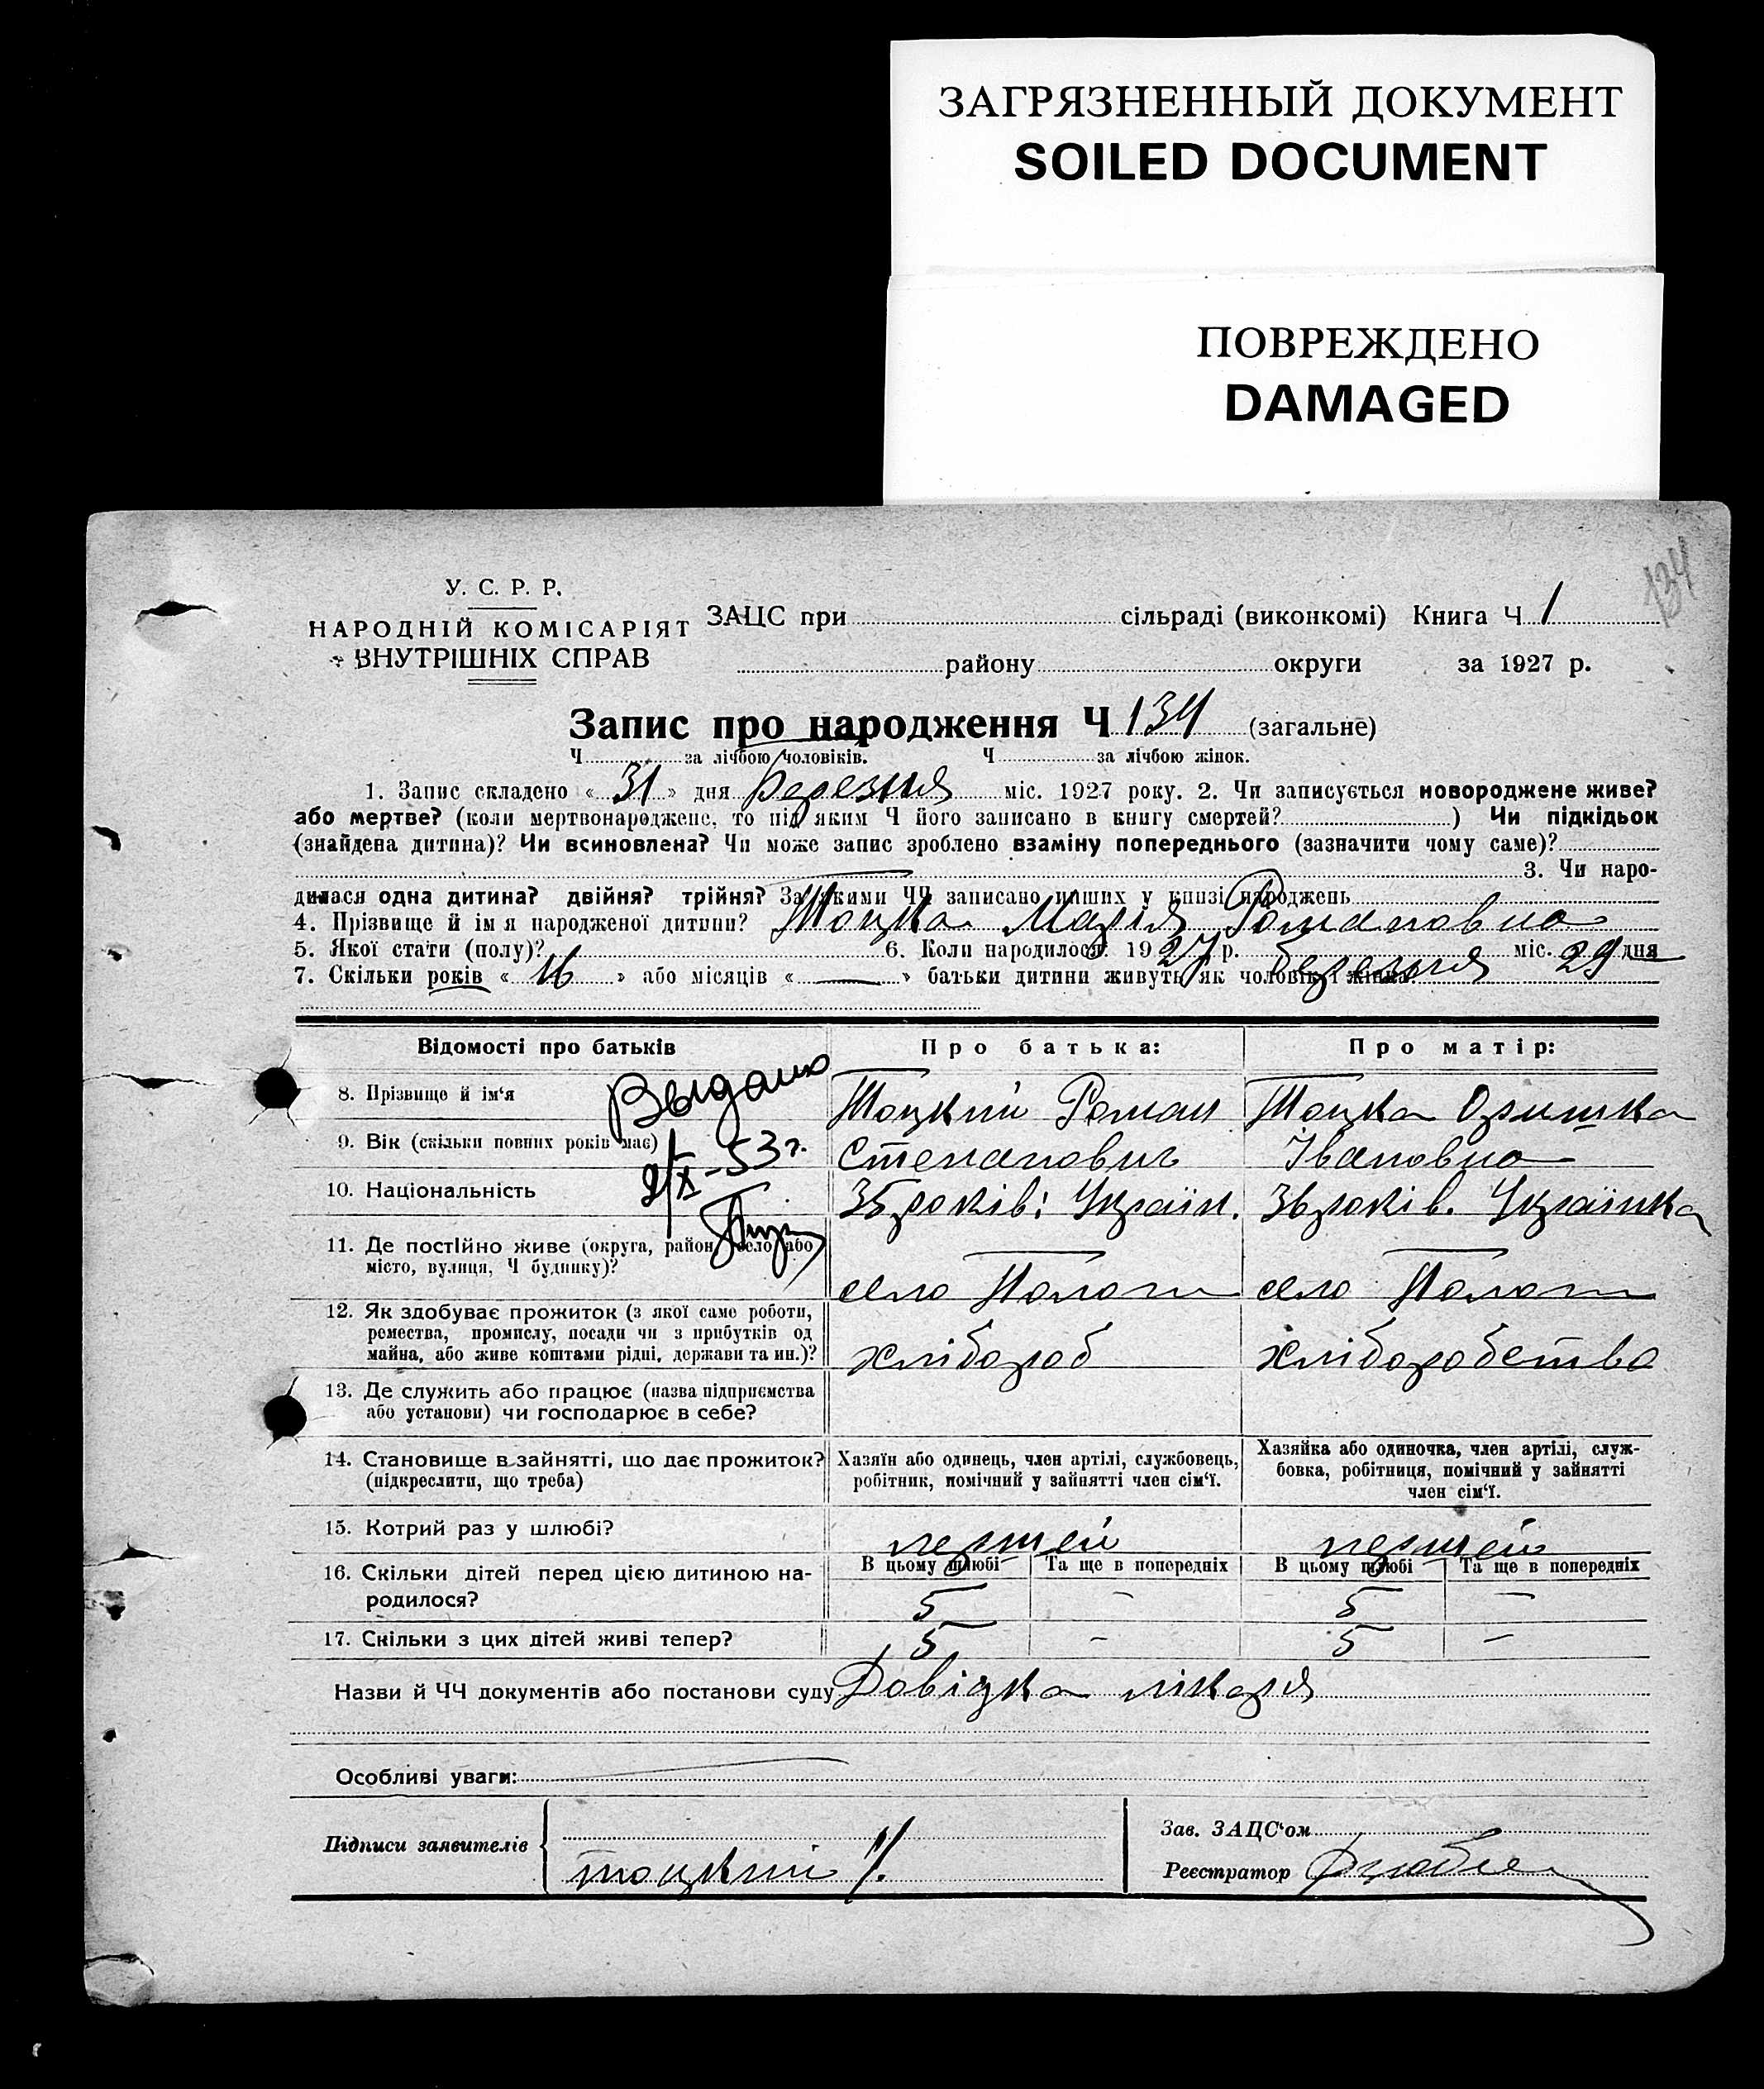 ЗАГРЯЗНЕННЫЙ ДОКУМЕНТ
SOILED DOCUMENT
ПОВРЕЖДЕНО
DAMAGED
134
У. С. Р. Р.
НАРОДНІЙ КОМІСАРІЯТ
ВНУТРІШНІХ СПРАВ
ЗАЦС при сільраді (виконкомі) Книга Ч 1
району округи за 1927 р.
Запис про народження Ч 134 (загальне)
Ч за лічбою чоловіків. Ч за лічбою жінок.
1. Запис складено « 31 » дня Березня міс. 1927 року. 2. Чи записується новороджене живе?
або мертве? (коли мертвонароджене, то під яким Ч його записано в книгу смертей? ) Чи підкідьок
(знайдена дитина)? Чи всиновлена? Чи може запис зроблено взаміну попереднього (зазначити чому саме)?
3. Чи наро-
дилася одна дитина? двійня? трійня? За якими ЧЧ записано инших у книзі народжень
4. Прізвище й ім я народженої дитини? Тоцка Марія Романовна
5. Якої стати (полу)? 6. Коли народилося: 1927 р. березня міс. 29 дня
7. Скільки років « 16 » або місяців « — » батьки дитини живуть як чоловік і жінка?
Відомості про батьків
Про батька:
Про матір:
8. Прізвище й ім‘я
Выдано
Тоцкий Роман
Тоцка Оришка
9. Вік (скільки повних років має)
2/X-53 г.
Степанович
Івановна
10. Національність
35 років: Україн.
36 років. Українка
11. Де постійно живе (округа, район, село або
місто, вулиця, Ч будинку)?
село Пологи
село Пологи
12. Як здобуває прожиток (з якої саме роботи,
ремества, промислу, посади чи з прибутків од
майна, або живе коштами рідні, держави та ин.)?
хлібороб
хліборобства
13. Де служить або працює (назва підприємства
або установи) чи господарює в себе?
14. Становище в зайнятті, що дає прожиток?
(підкреслити, що треба)
Хазяїн або одинець, член артілі, службовець,
робітник, помічний у зайнятті член сім‘ї.
Хазяйка або одиночка, член артілі, служ-
бовка, робітниця, помічний у зайнятті
член сім‘ї.
15. Котрий раз у шлюбі?
першей
першей
16. Скільки дітей перед цією дитиною на-
родилося?
В цьому шлюбі Та ще в попередніх
В цьому шлюбі Та ще в попередніх
5 — 5 —
17. Скільки з цих дітей живі тепер?
5 – 5 –
Назви й ЧЧ документів або постанови суду Довідка лікаря
Особливі уваги:
Підписи заявителів
тоцкий
Зав. ЗАЦС‘ом
Реєстратор